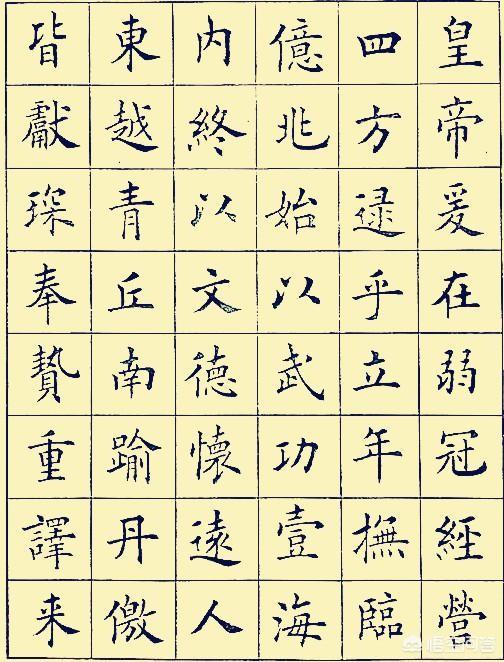 皇帝爰在弱冠經營
四方逮乎立年撫臨
億兆始以武功壹海
內終以文德懷遠人
東越青丘南踰丹儌
皆獻琛奉贄重譯来
悟空问答